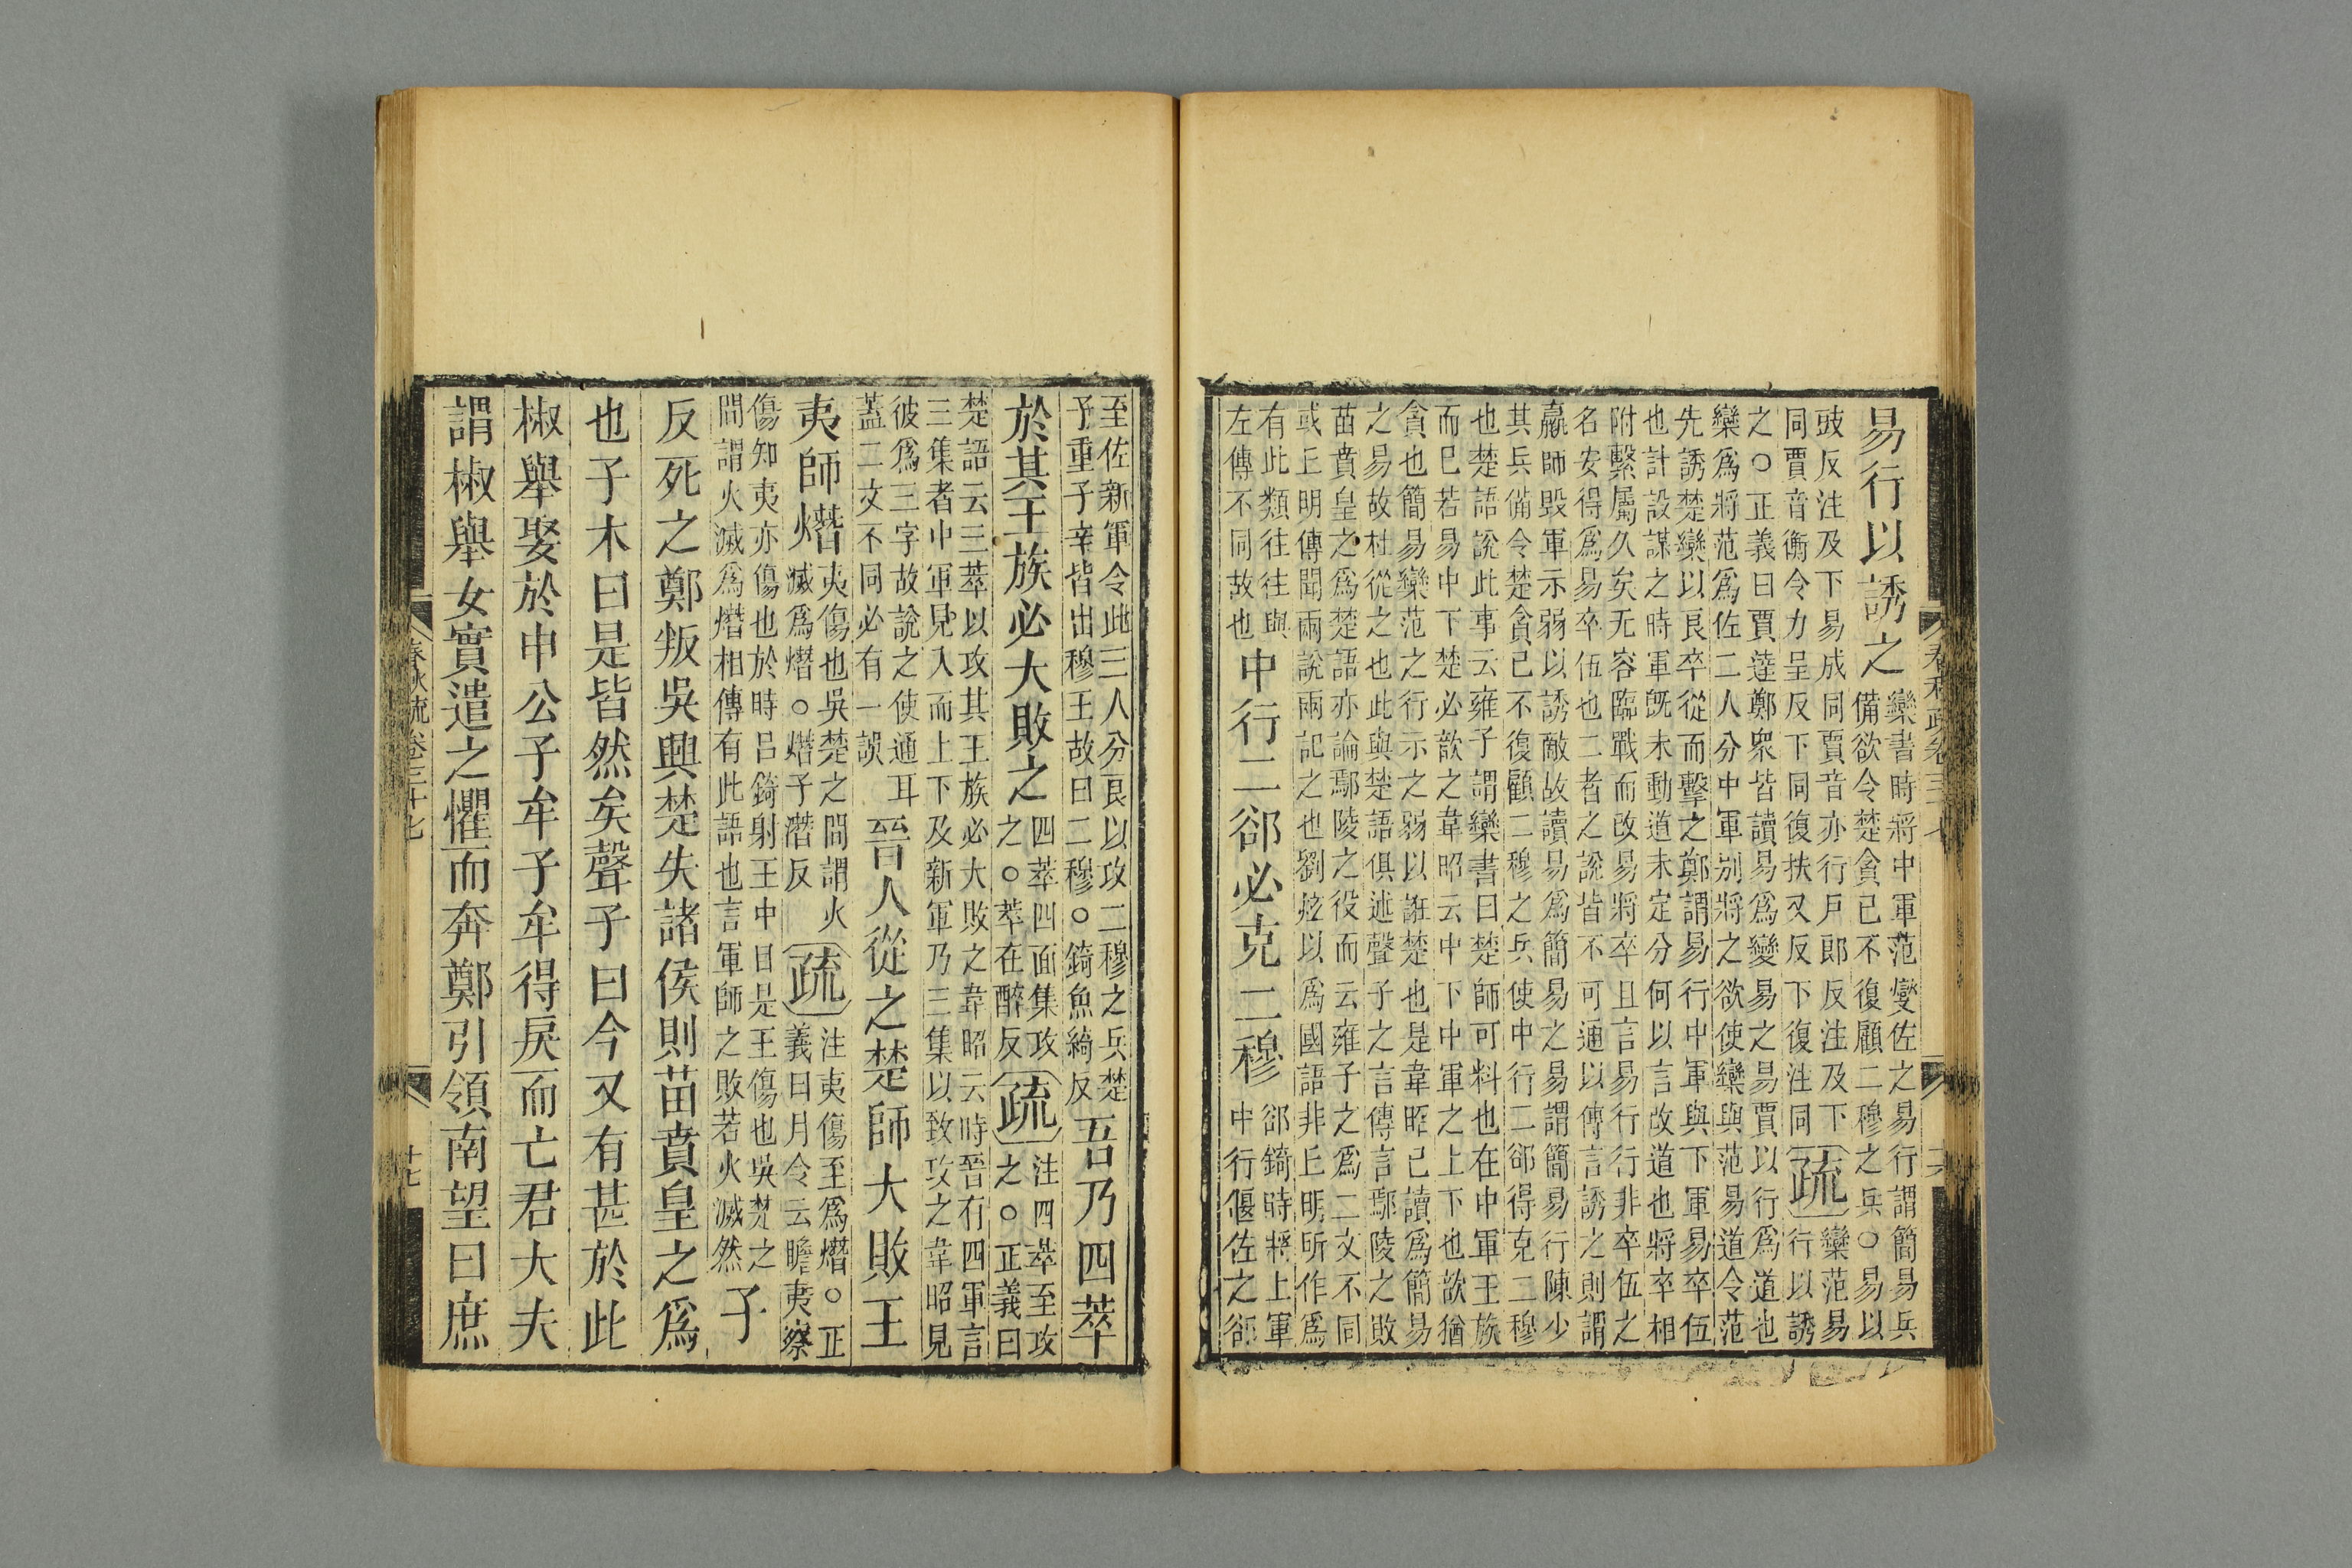 易行以誘之欒書時將中軍范燮佐之易行謂簡易兵
備欲令楚貪己不復顧二穆之兵○易以
豉反注及下易成同賈音亦行戶郎反注及下
同賈音衡令力呈反下同復扶又反下復注同疏欒范易
行以誘
之○正義曰賈逵鄭衆皆讀易爲變易之易賈以行爲道也
欒爲將范爲佐二人分中軍别將之欲使欒與范易道令范
先誘楚欒以良卒從而擊之鄭謂易行中軍與下軍易卒伍
也計設謀之時軍旣未動道未定分何以言改道也將卒相
附繫屬久矣无容臨戰而改易將卒且言易行行非卒伍之
名安得爲易卒伍也二者之說皆不可通以傳言誘之則謂
羸師毀軍示弱以誘敵故讀易爲簡易之易謂簡易行陳少
其兵備令楚貪己不復顧二穆之兵使中行二郤得克二穆
也楚語說此事云雍子謂欒書曰楚師可料也在中軍王族
而已若易中下楚必歆之韋昭云中下中軍之上下也歆猶
貪也簡易欒范之行示之弱以誑楚也是韋昭已讀爲簡易
之易故杜從之也此與楚語俱述聲子之言傳言鄢陵之敗
苗賁皇之爲楚語亦論鄢陵之役而云雍子之爲二文不同
或丘明傳聞兩說兩記之也劉炫以爲國語非丘明所作爲
有此類往往與
左傳不同故也中行二郤必克二穆郤錡時將上軍
中行偃佐之郤
至佐新軍令此三人分良以攻二穆之兵楚
子重子辛皆出穆王故曰二穆○錡魚綺反吾乃四萃
於其王族必大敗之四萃四面集攻
之○萃在醉反疏注四萃至攻
之○正義曰
楚語云三萃以攻其王族必大敗之韋昭云時晉有四軍言
三集者中軍見入而上下及新軍乃三集以致攻之韋昭見
彼爲三字故說之使通耳
蓋二文不同必有一誤晉人從之楚師大敗王
夷師熸夷傷也吳楚之間謂火
滅爲熸○熸子潛反疏注夷傷至爲熸○正
義曰月令云瞻夷察
傷知夷亦傷也於時呂錡射王中目是王傷也吳楚之
間謂火滅爲熸相傳有此語也言軍師之敗若火滅然子
反死之鄭叛吳興楚失諸侯則苗賁皇之爲
也子木曰是皆然矣聲子曰今又有甚於此
椒舉娶於申公子牟子牟得戾而亡君大夫
謂椒舉女實遣之懼而奔鄭引領南望曰庶